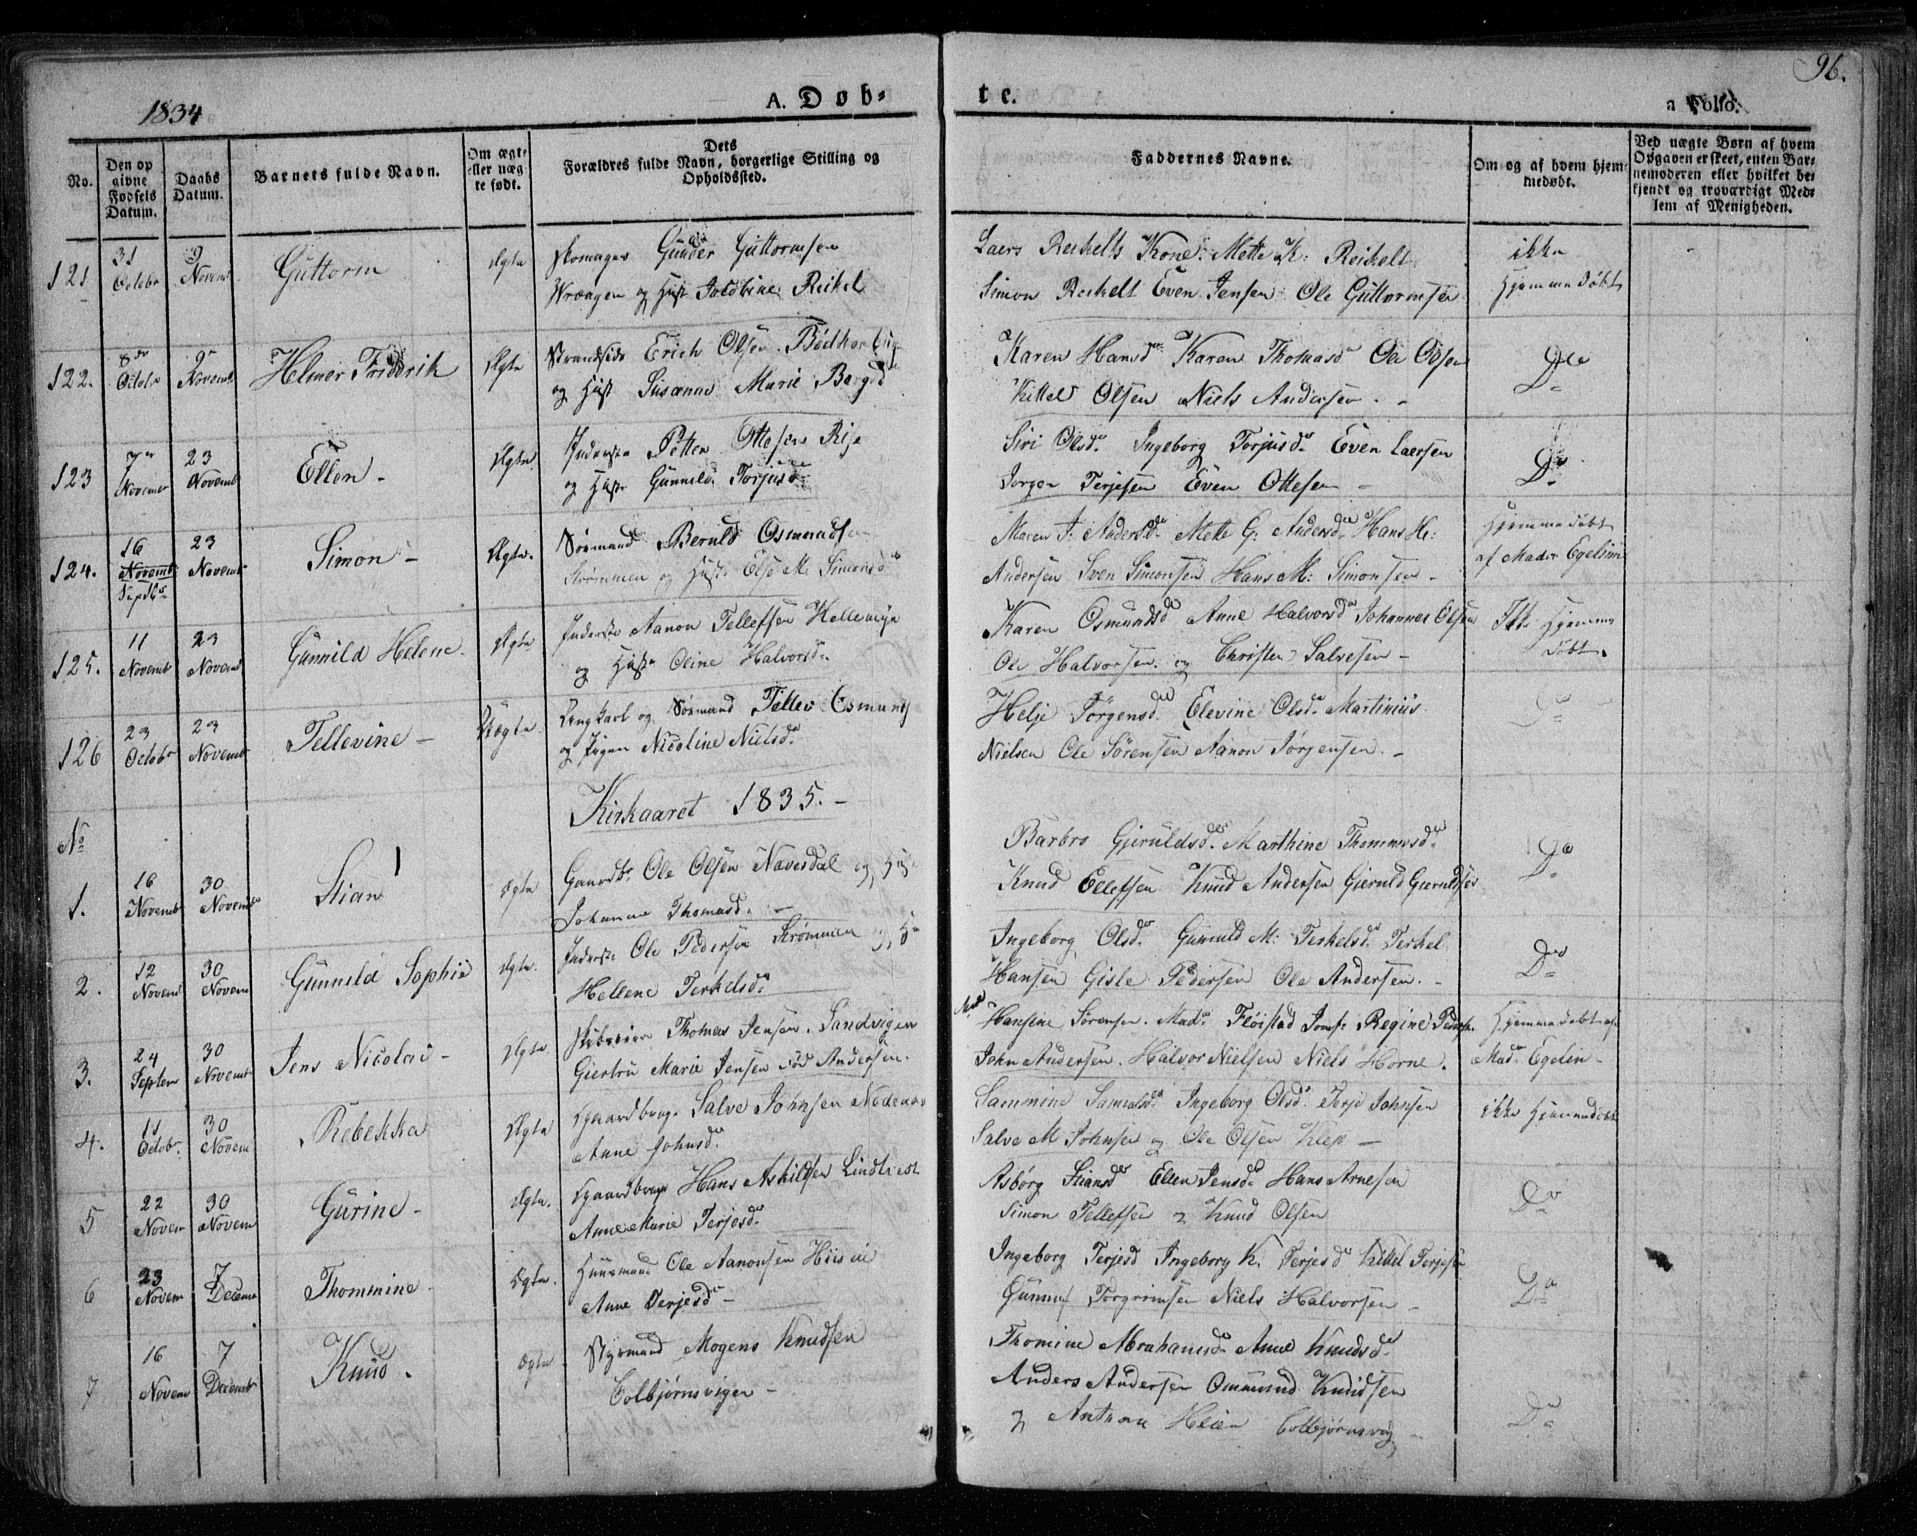 1834
A. Døb-
te.
96.
a Folio.
No.
Den op
givne
Fødsels
Datum.
Daabs
Datum.
Barnets fulde Navn.
Om ægte
eller uæg-
te født.
Dets
Forældres fulde Navn, borgerlige Stilling og
Opholdssted.
Faddernes Navne.
Om og af hvem hjem-
medøbt.
Ved uægte Børn af hvem
Opgaven er skeet, enten Bar-
nemoderen eller hvilket be-
kjendt og troværdigt Med-
lem af Menigheden.
121
31 Octobr
9 Novemb
Guttorm
Ægte
Skomager Gunder Guttormsen
og Hust Reikel
Laers Reikelts Kone: Mette K: Reikelt
Simon Reikelt Even Jensen Ole Guttormsen
ikke
Hjemmedøbt
122.
8de Octobr
9e Novemb
Helmer Friderik
Ægte
Erich Olsen
og Hust Susanne Marie
Karen Hansd Karen Thomasd Ole Olsen
Kittel Olsen Niels Andersen
Do
123
7de Novemer
23 Novemb
Ellen
Ægte
Inderste Petter Ottesen Rise
og Huste Gunnild Torjusd
Siri Olsd Ingeborg Torjusd. Even Laersen
Jorgen Terjesen Even Ottesen
Do
124.
16 Novemb
Septbr
23 Novemb
Simon
Ægte.
Sømand Beruld Osmundsen
Strømmen og Hust Else M. Simonsd
Maren J: Andersd. Mette G: Andersd. Hans H:
Andersen Sven Simonsen Hans M: Simonsen
Hjemmedøbt
af Mader Egelin
125.
11 Novemb
23 Novemb
Gunnild Helene
Ægte
Inderste Aanon Tellefsen Hellemyr
og Huste Oline Halvorsd.
Karen Osmundsd Anne Halvorsd Johannes Olsen
Ole Halvorsen. og Christen Salvesen
Ikke Hjemme
døbt.
126
23 Octobr
23 Novemb
Tellevine
Uægte
Ungkarl og Sømand Tellev Osmunds
og Pigen Nicoline Nielsd.
Helje Jörgensd. Elevine Olsd. Martinius
Nielsen Ole Sörensen Aanon Jörgensen.
Do
Kirkaaret 1835.
No
1.
16 Novemb
30 Novemb
Stian
Ægte
Gaardb. Ole Olsen Navesdal og Hus
Johanne Thomasd.
Barbro Gjeruldsd. Marthine Thommasd.
Knud Ellefsen Knud Andersen Gieruld Gieruldsen
Do
2.
12 Novemb
30 Novem
Gunnild Sophie
Ægte.
Inderste Ole Pedersen Strømmen og H
Hellene Terkelsd.
Ingeborg Olsd. Gunnuld M: Terkelsd. Terkel
Hansen Gisle Pedersen Ole Andersen.
Do
3.
24 Septem
30 Novemb
Jens Nicolai
Ægte
Thomas Jensen. Sandvigen
Giertru Marie Jensen fød Andersen.
Mad Hansine Sørensen. Mad. Fløistad Jomf. Regine Peders.
John Andersen. Halvor Nielsen Niels Horne.
Hjemmedøbt af
Mad. Egelin
4.
11 Octobr.
30 Novem
Rebekka
Ægte
Gaardbrug. Salve Johnsen
Anne Johnsd.
Sammine Samuelsd Ingeborg Olsd. Terje Johnsen
Salve M Johnsen og Ole Olsen Klep
ikke Hjemmedøbt
5
22 Novem
30 Novem
Gurine
Ægte.
Gaardbrug Hans Askildsen Lindtveit
Anne Marie Terjesd.
Asbörg Stiansd Ellen Jensd. Hans Arnesen
Simon Tellefsen og Knud Olsen
Do
6
23 Novem
7 Decem
Thommine
Ægte.
Huusmand Ole Aanonsen
Anne Terjesd
Ingeborg Terjesd Ingeborg K. Terjesd Kittel Terjesen
Torgrimsen Niels Halvorsen
Do
7.
16 Novem
7 Decemb
Knud.
Ægte
Styrmand Mogens Knudsen
Colbjørnsvigen
Thomine Abrahamsd Anne Knudsd.
Anders Andersen Ommund Knudsen
og Anthon Heien Colbjørnsvig
Do